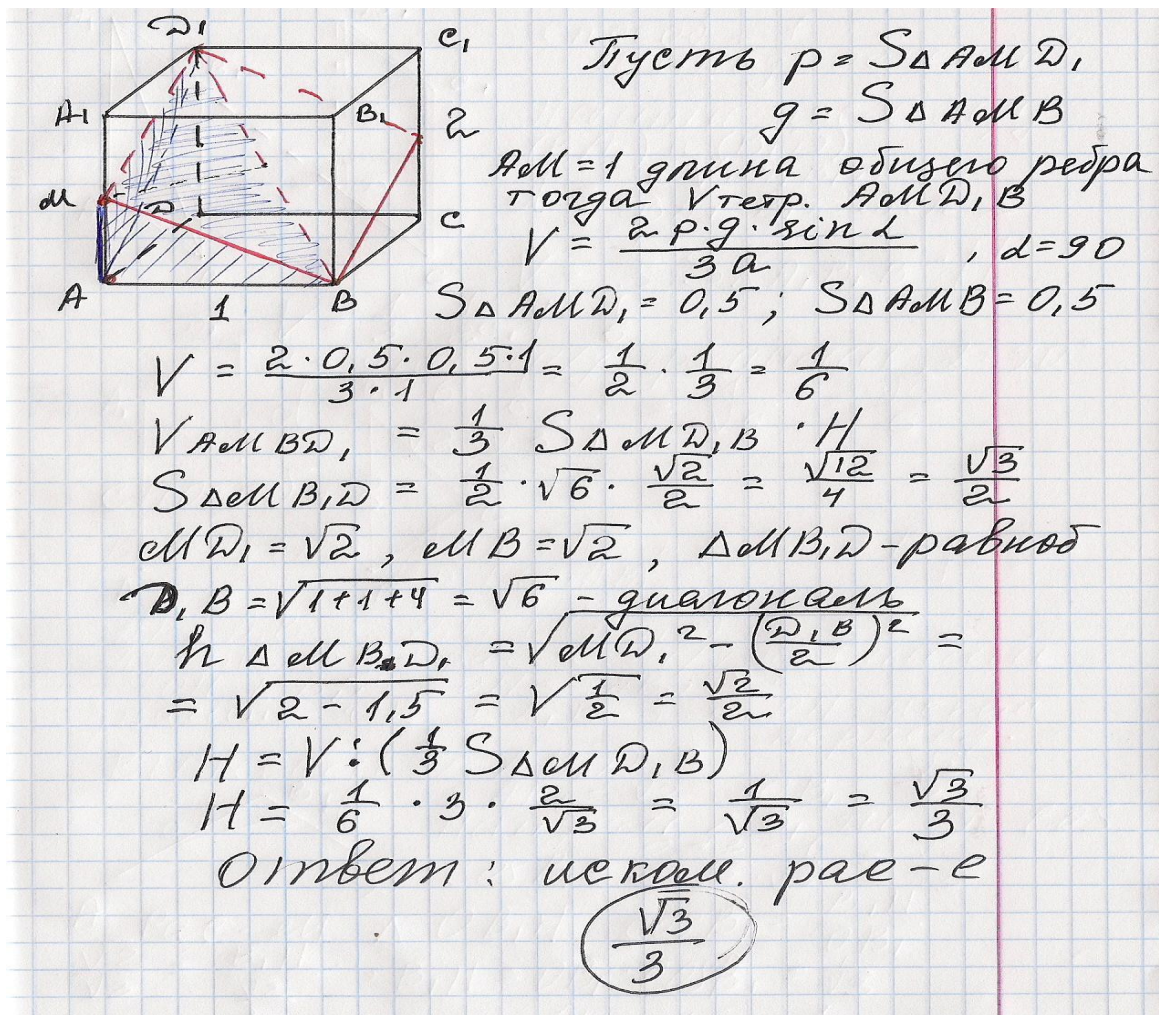 D1
C1
A1
B1
2
M
D
C
A
1
B
Пусть p = S∆AMD1
g = S∆AMB
AM = 1 длина общего ребра
тогда Vтетр. AMD1B
V = 2p·g·sinα / 3a , α=90
S∆AMD1 = 0,5 ; S∆AMB = 0,5
V = 2·0,5·0,5·1 / 3·1 = 1/2 · 1/3 = 1/6
VAMBD1 = 1/3 S∆MD1B · H
S∆MB1D = 1/2 · √6 · √2/2 = √12/4 = √3/2
MD1 = √2 , MB = √2 , ∆MB1D – равноб
D1B = √1+1+4 = √6 – диагональ
h ∆MB D1 = √MD1² – (D1B/2)² =
= √2 – 1,5 = √1/2 = √2/2
H = V : (1/3 S∆MD1B)
H = 1/6 · 3 · 2/√3 = 1/√3 = √3/3
Ответ: иском. рас–е
√3/3